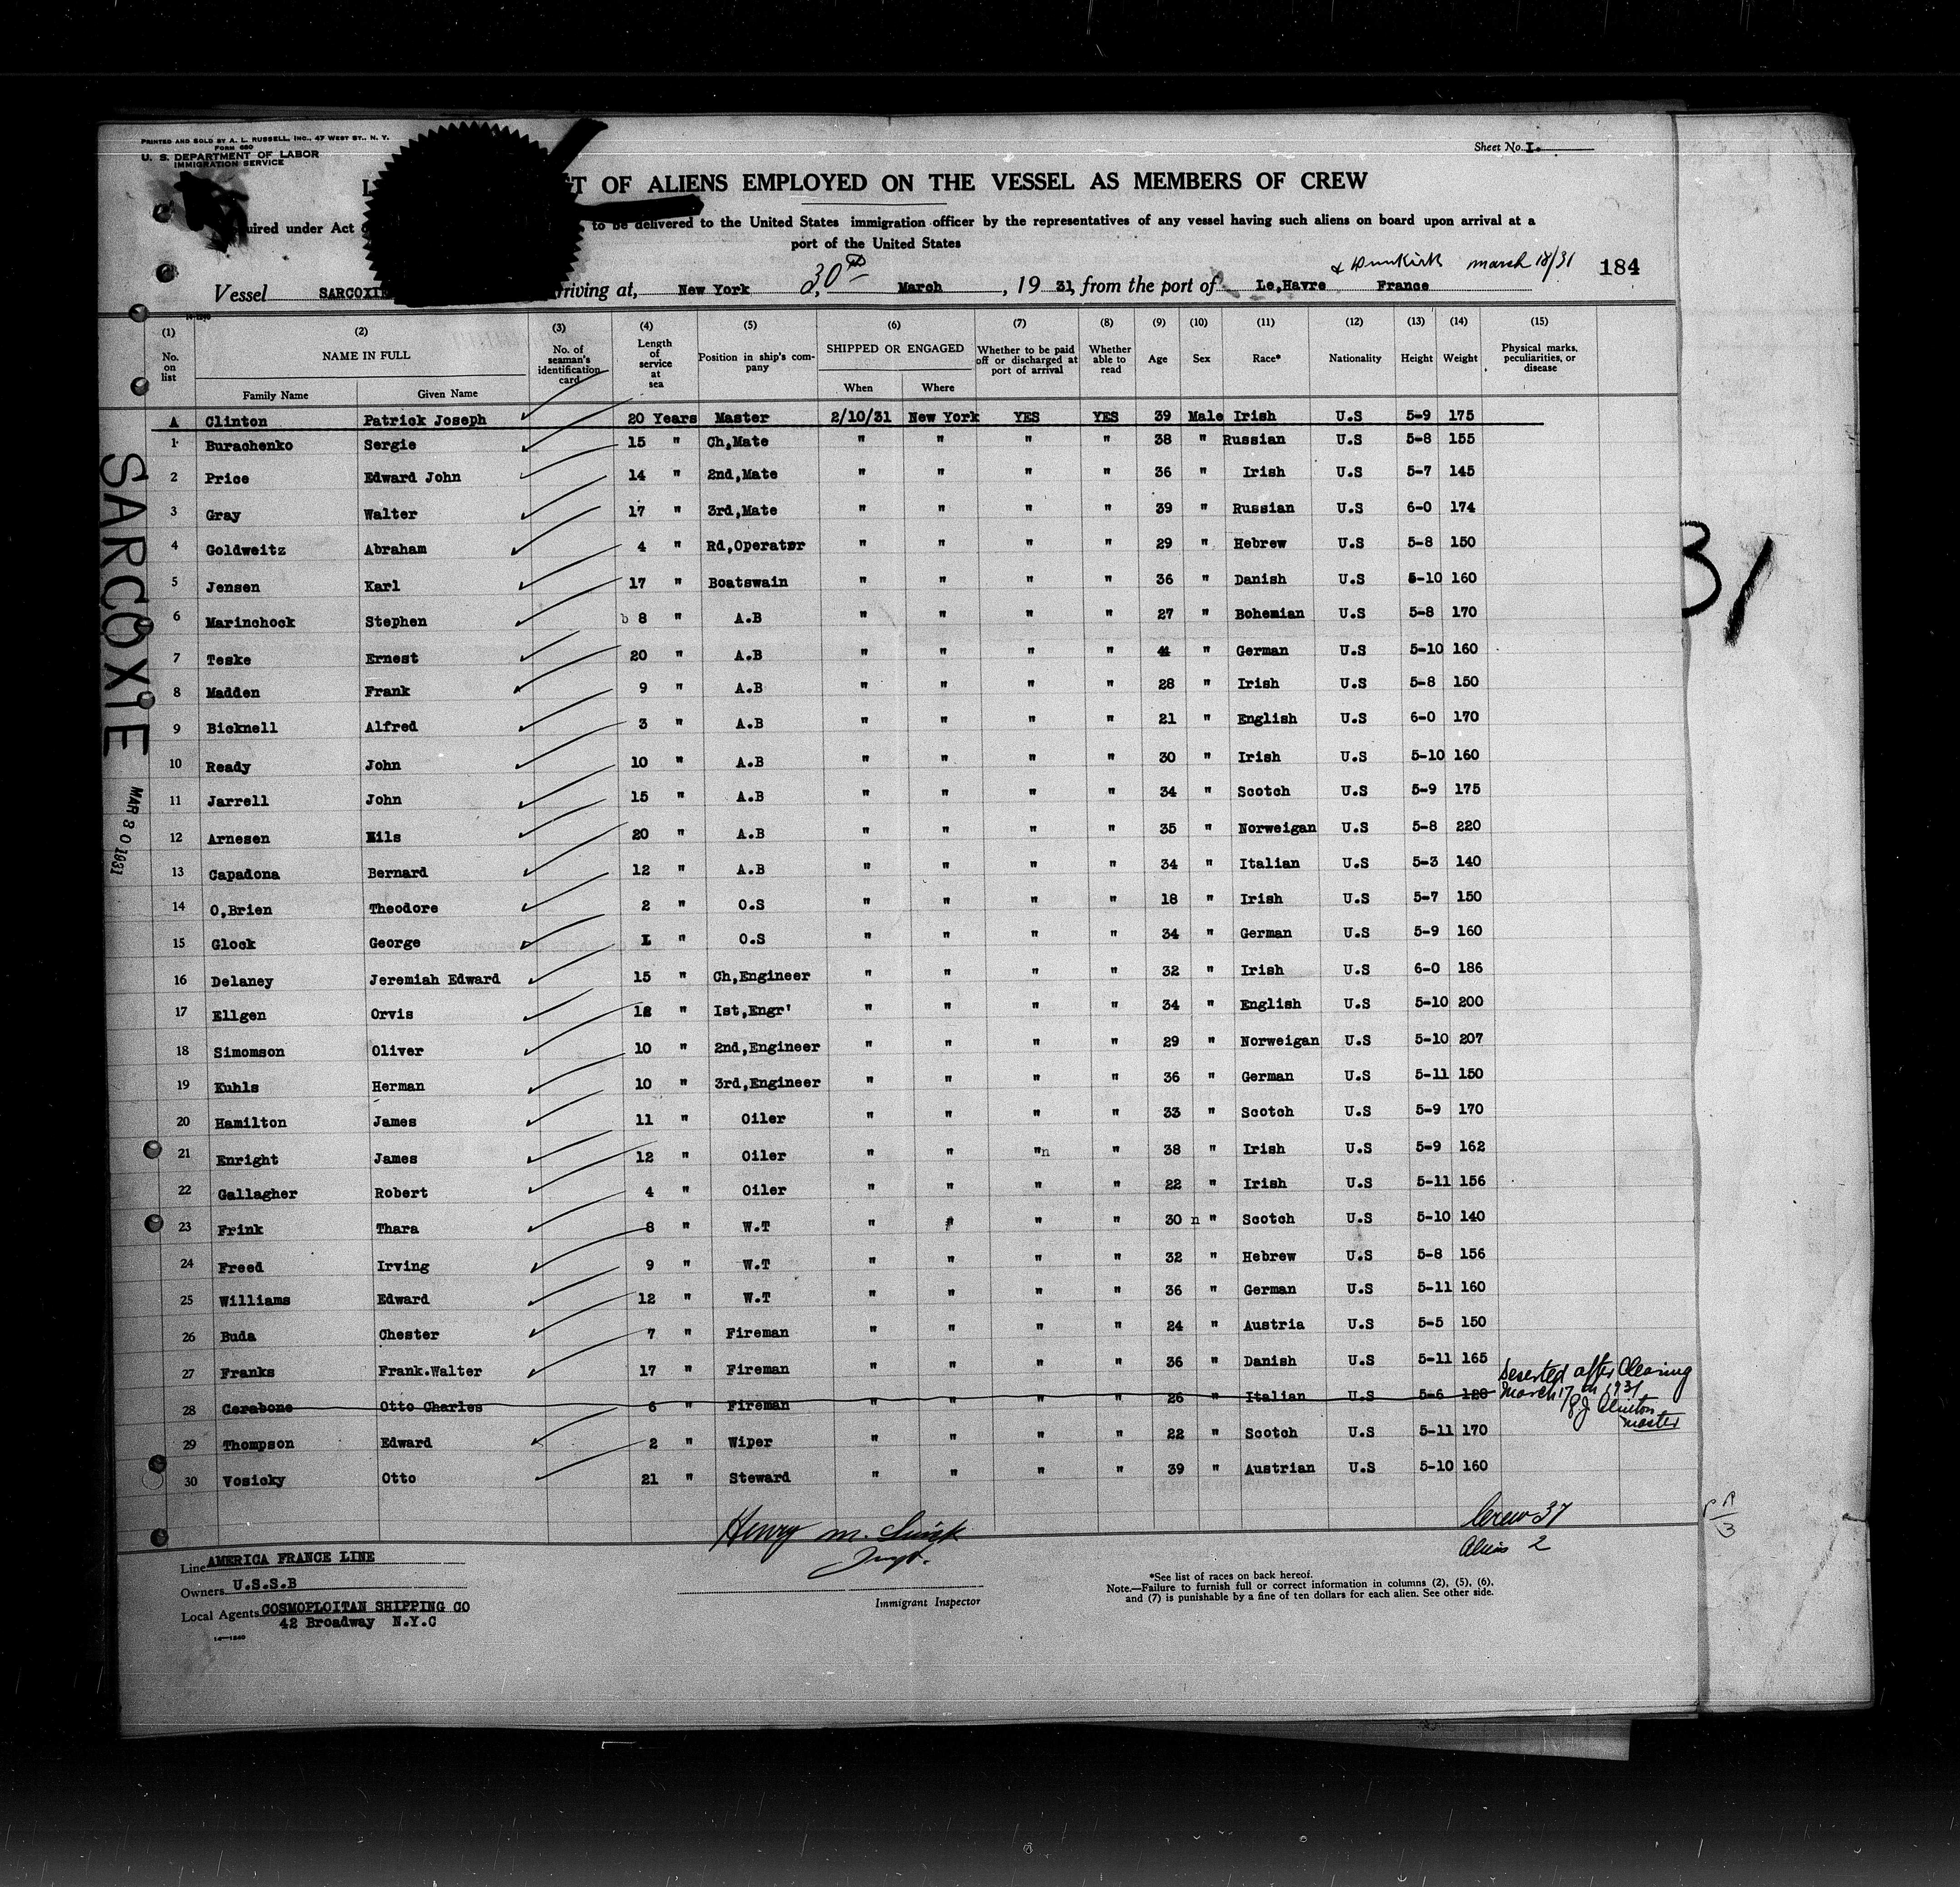 PRINTED AND SOLD BY A. L. RUSSELL, INC., 47 WEST ST., N. Y.
FORM 680
U. S. DEPARTMENT OF LABOR
IMMIGRATION SERVICE
Sheet No. I.
OF ALIENS EMPLOYED ON THE VESSEL AS MEMBERS OF CREW
under Act to be delivered to the United States immigration officer by the representatives of any vessel having such aliens on board upon arrival at a
port of the United States
& Dunkirk march 18/31 184
Vessel SARCOXIE arriving at, New York 30th March, 19 31, from the port of Le,Havre France
(1) (2) (3) (4) (5) (6) (7) (8) (9) (10) (11) (12) (13) (14) (15)
No. on list NAME IN FULL Family Name Given Name No. of seaman's identification card Length of service at sea Position in ship's company SHIPPED OR ENGAGED When Where Whether to be paid off or discharged at port of arrival Whether able to read Age Sex Race* Nationality Height Weight Physical marks, peculiarities, or disease
A Clinton Patrick Joseph 20 Years Master 2/10/31 New York YES YES 39 Male Irish U.S 5-9 175
1 Burachenko Sergie 15 " Ch,Mate " " " " 38 " Russian U.S 5-8 155
2 Price Edward John 14 " 2nd,Mate " " " " 36 " Irish U.S 5-7 145
3 Gray Walter 17 " 3rd,Mate " " " " 39 " Russian U.S 6-0 174
4 Goldweitz Abraham 4 " Rd,Operator " " " " 29 " Hebrew U.S 5-8 150
5 Jensen Karl 17 " Boatswain " " " " 36 " Danish U.S 5-10 160
6 Marinchock Stephen b 8 " A.B " " " " 27 " Bohemian U.S 5-8 170
7 Teske Ernest 20 " A.B " " " " " German U.S 5-10 160
8 Madden Frank 9 " A.B " " " " 28 " Irish U.S 5-8 150
9 Bicknell Alfred 3 " A.B " " " " 21 " English U.S 6-0 170
10 Ready John 10 " A.B " " " " 30 " Irish U.S 5-10 160
11 Jarrell John 15 " A.B " " " " 34 " Scotch U.S 5-9 175
12 Arnesen Nils 20 " A.B " " " " 35 " Norweigan U.S 5-8 220
13 Capadona Bernard 12 " A.B " " " " 34 " Italian U.S 5-3 140
14 O,Brien Theodore 2 " O.S " " " " 18 " Irish U.S 5-7 150
15 Glock George " O.S " " " " 34 " German U.S 5-9 160
16 Delaney Jeremiah Edward 15 " Ch,Engineer " " " " 32 " Irish U.S 6-0 186
17 Ellgen Orvis " Ist,Engr' " " " " 34 " English U.S 5-10 200
18 Simomson Oliver 10 " 2nd,Engineer " " " " 29 " Norweigan U.S 5-10 207
19 Kuhls Herman 10 " 3rd,Engineer " " " " 36 " German U.S 5-11 150
20 Hamilton James 11 " Oiler " " " " 33 " Scotch U.S 5-9 170
21 Enright James 12 " Oiler " " "n " 38 " Irish U.S 5-9 162
22 Gallagher Robert 4 " Oiler " " " " 22 " Irish U.S 5-11 156
23 Frink Thara 8 " W.T " " " " 30 n " Scotch U.S 5-10 140
24 Freed Irving 9 " W.T " " " " 32 " Hebrew U.S 5-8 156
25 Williams Edward 12 " W.T " " " " 36 " German U.S 5-11 160
26 Buda Chester 7 " Fireman " " " " 24 " Austria U.S 5-5 150
27 Franks Frank.Walter 17 " Fireman " " " " 36 " Danish U.S 5-11 165
28 Carabone Otto Charles 6 " Fireman " " " " 26 " Italian U.S 5-6 128 Deserted after Clearing March 17th 1931 P.J. Clinton master
29 Thompson Edward 2 " Wiper " " " " 22 " Scotch U.S 5-11 170
30 Vosicky Otto 21 " Steward " " " " 39 " Austrian U.S 5-10 160
SARCOXIE
MAR 30 1931
31
Henry M.
Insp.
Crew 37
Aliens 2
Line AMERICA FRANCE LINE
Owners U.S.S.B
Local Agents COSMOPLOITAN SHIPPING CO
42 Broadway N.Y.C
Immigrant Inspector
*See list of races on back hereof.
Note.—Failure to furnish full or correct information in columns (2), (5), (6),
and (7) is punishable by a fine of ten dollars for each alien. See other side.